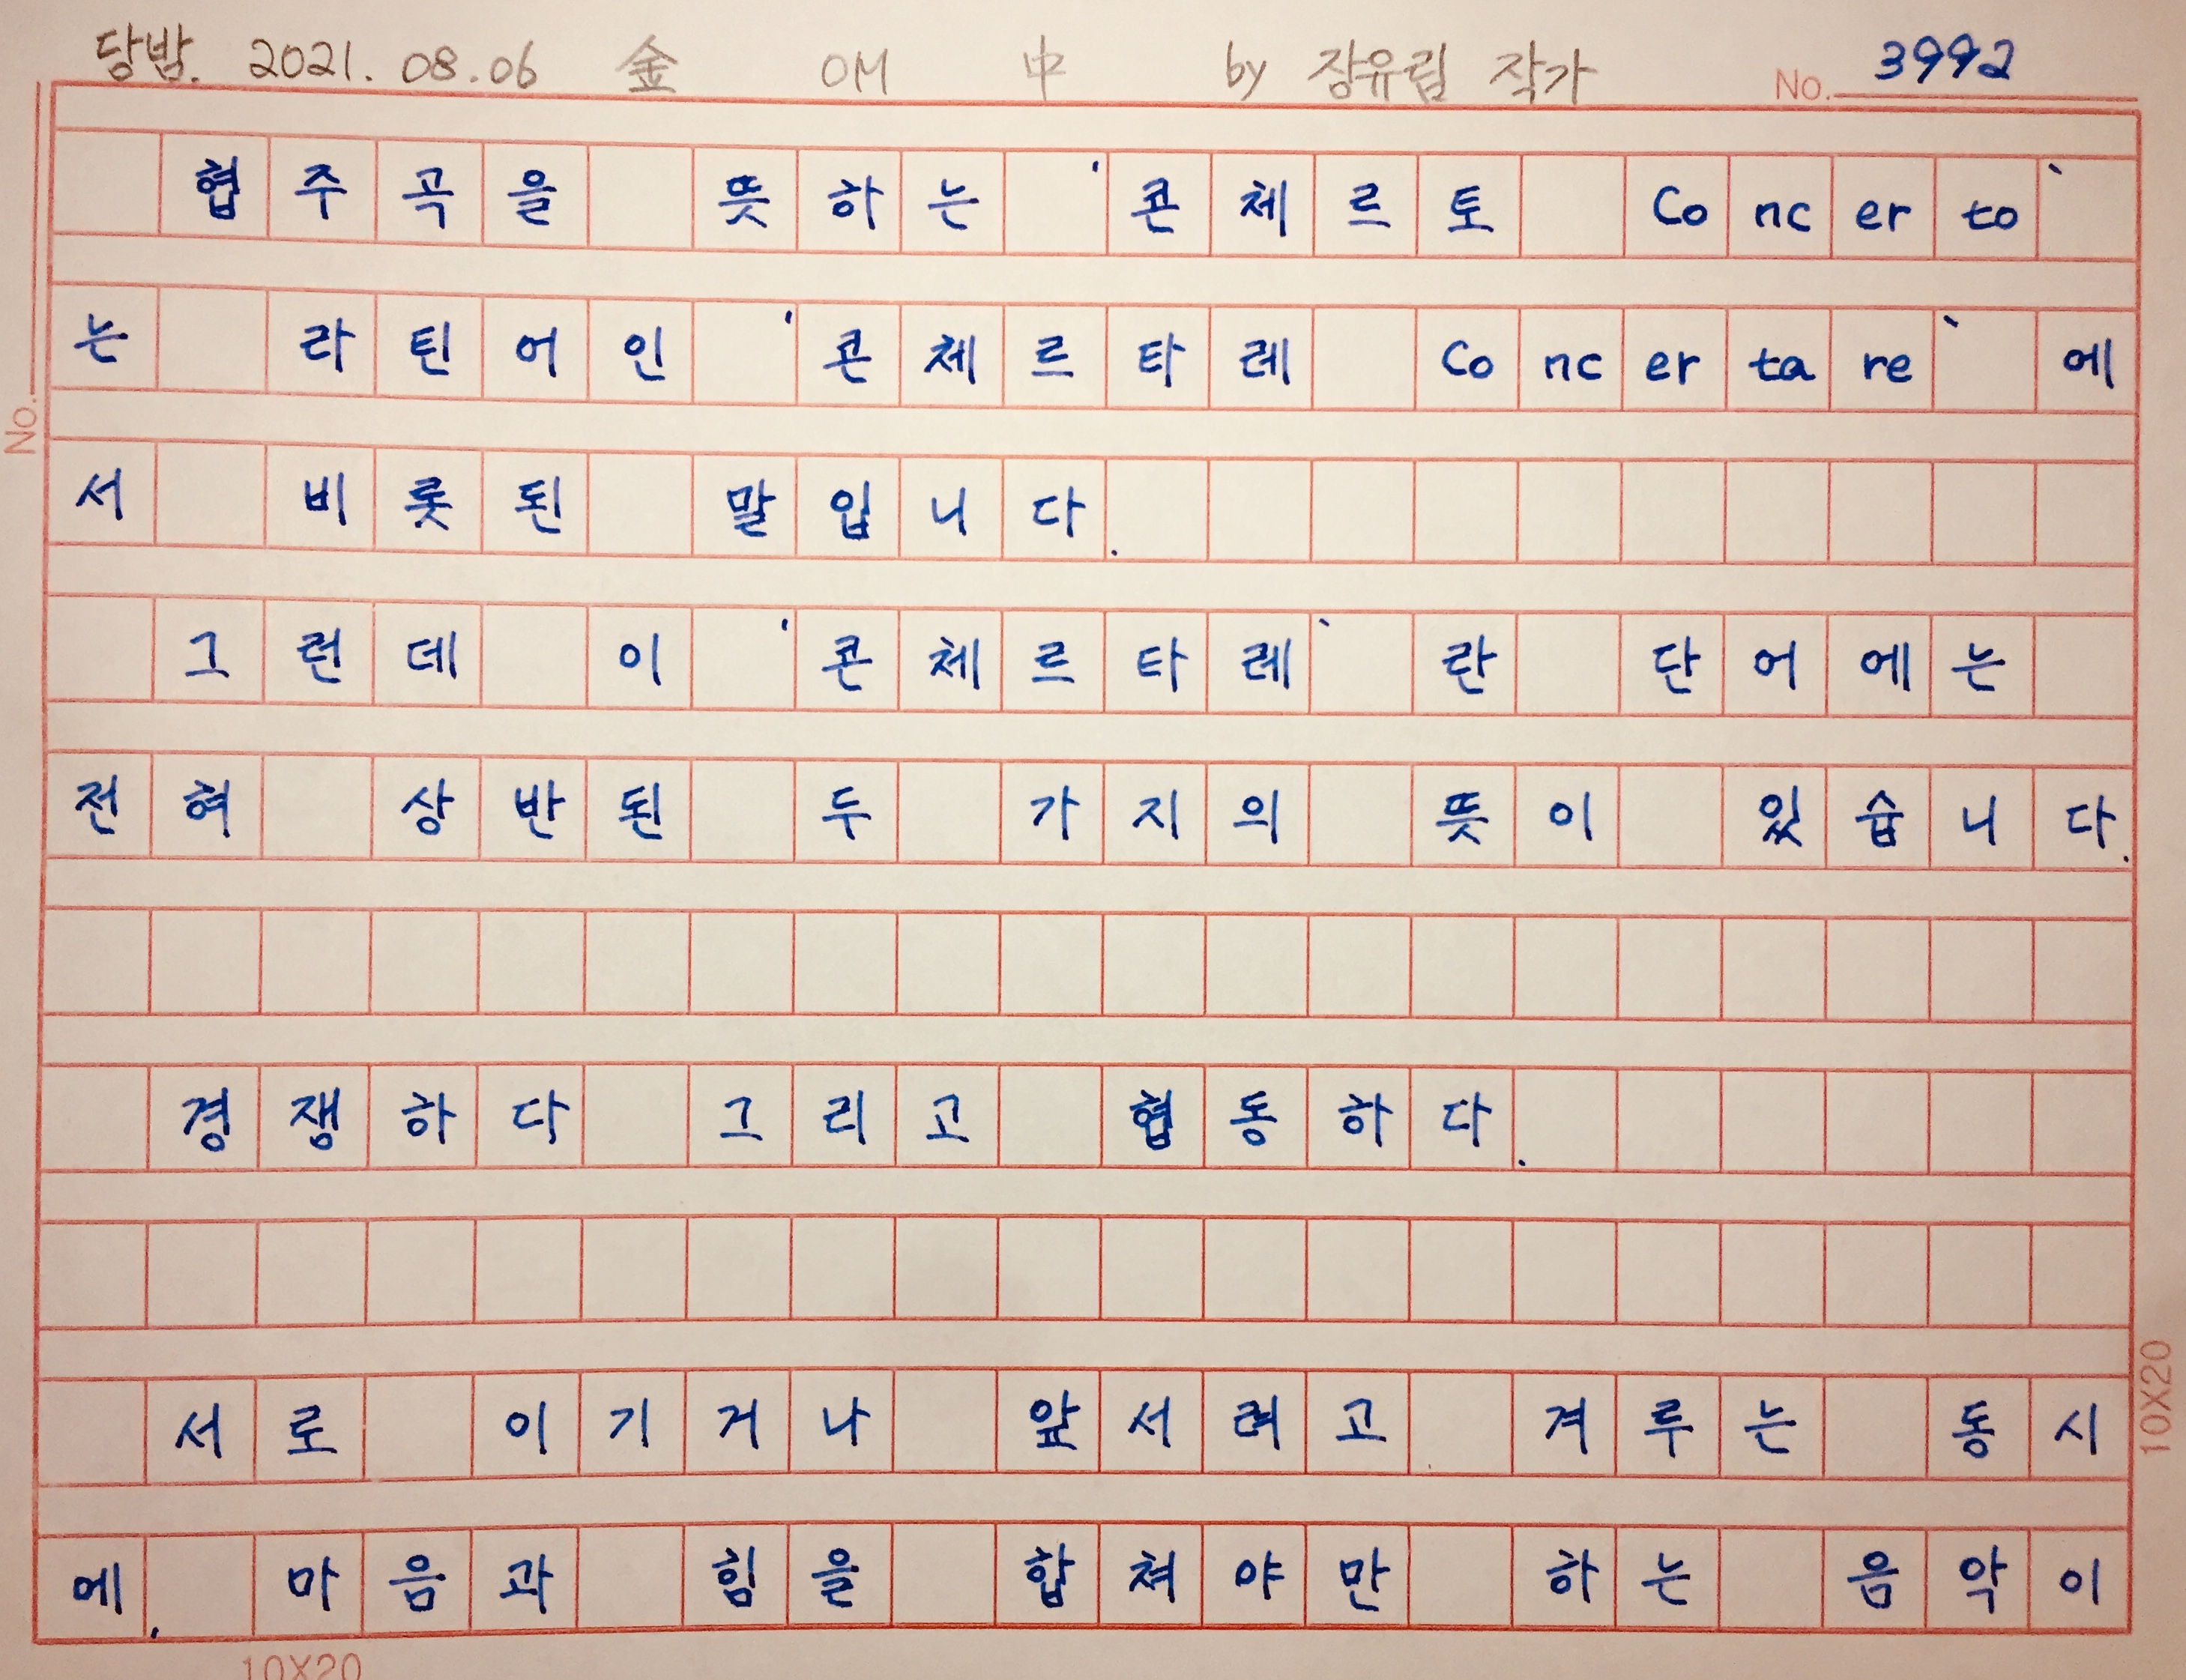 당밤. 2021. 08.06 金 OM 中 by 장유림 작가 No. 3992
협주곡을 뜻하는 '콘체르토 Concerto`
는 라틴어인 '콘체르타레 Concertare` 에
서 비롯된 말입니다.
그런데 이 '콘체르타레` 란 단어에는
전혀 상반된 두 가지의 뜻이 있습니다.
경쟁하다 그리고 협동하다.
서로 이기거나 앞서려고 겨루는 동시
에, 마음과 힘을 합쳐야만 하는 음악이
No.
10X20
10X20